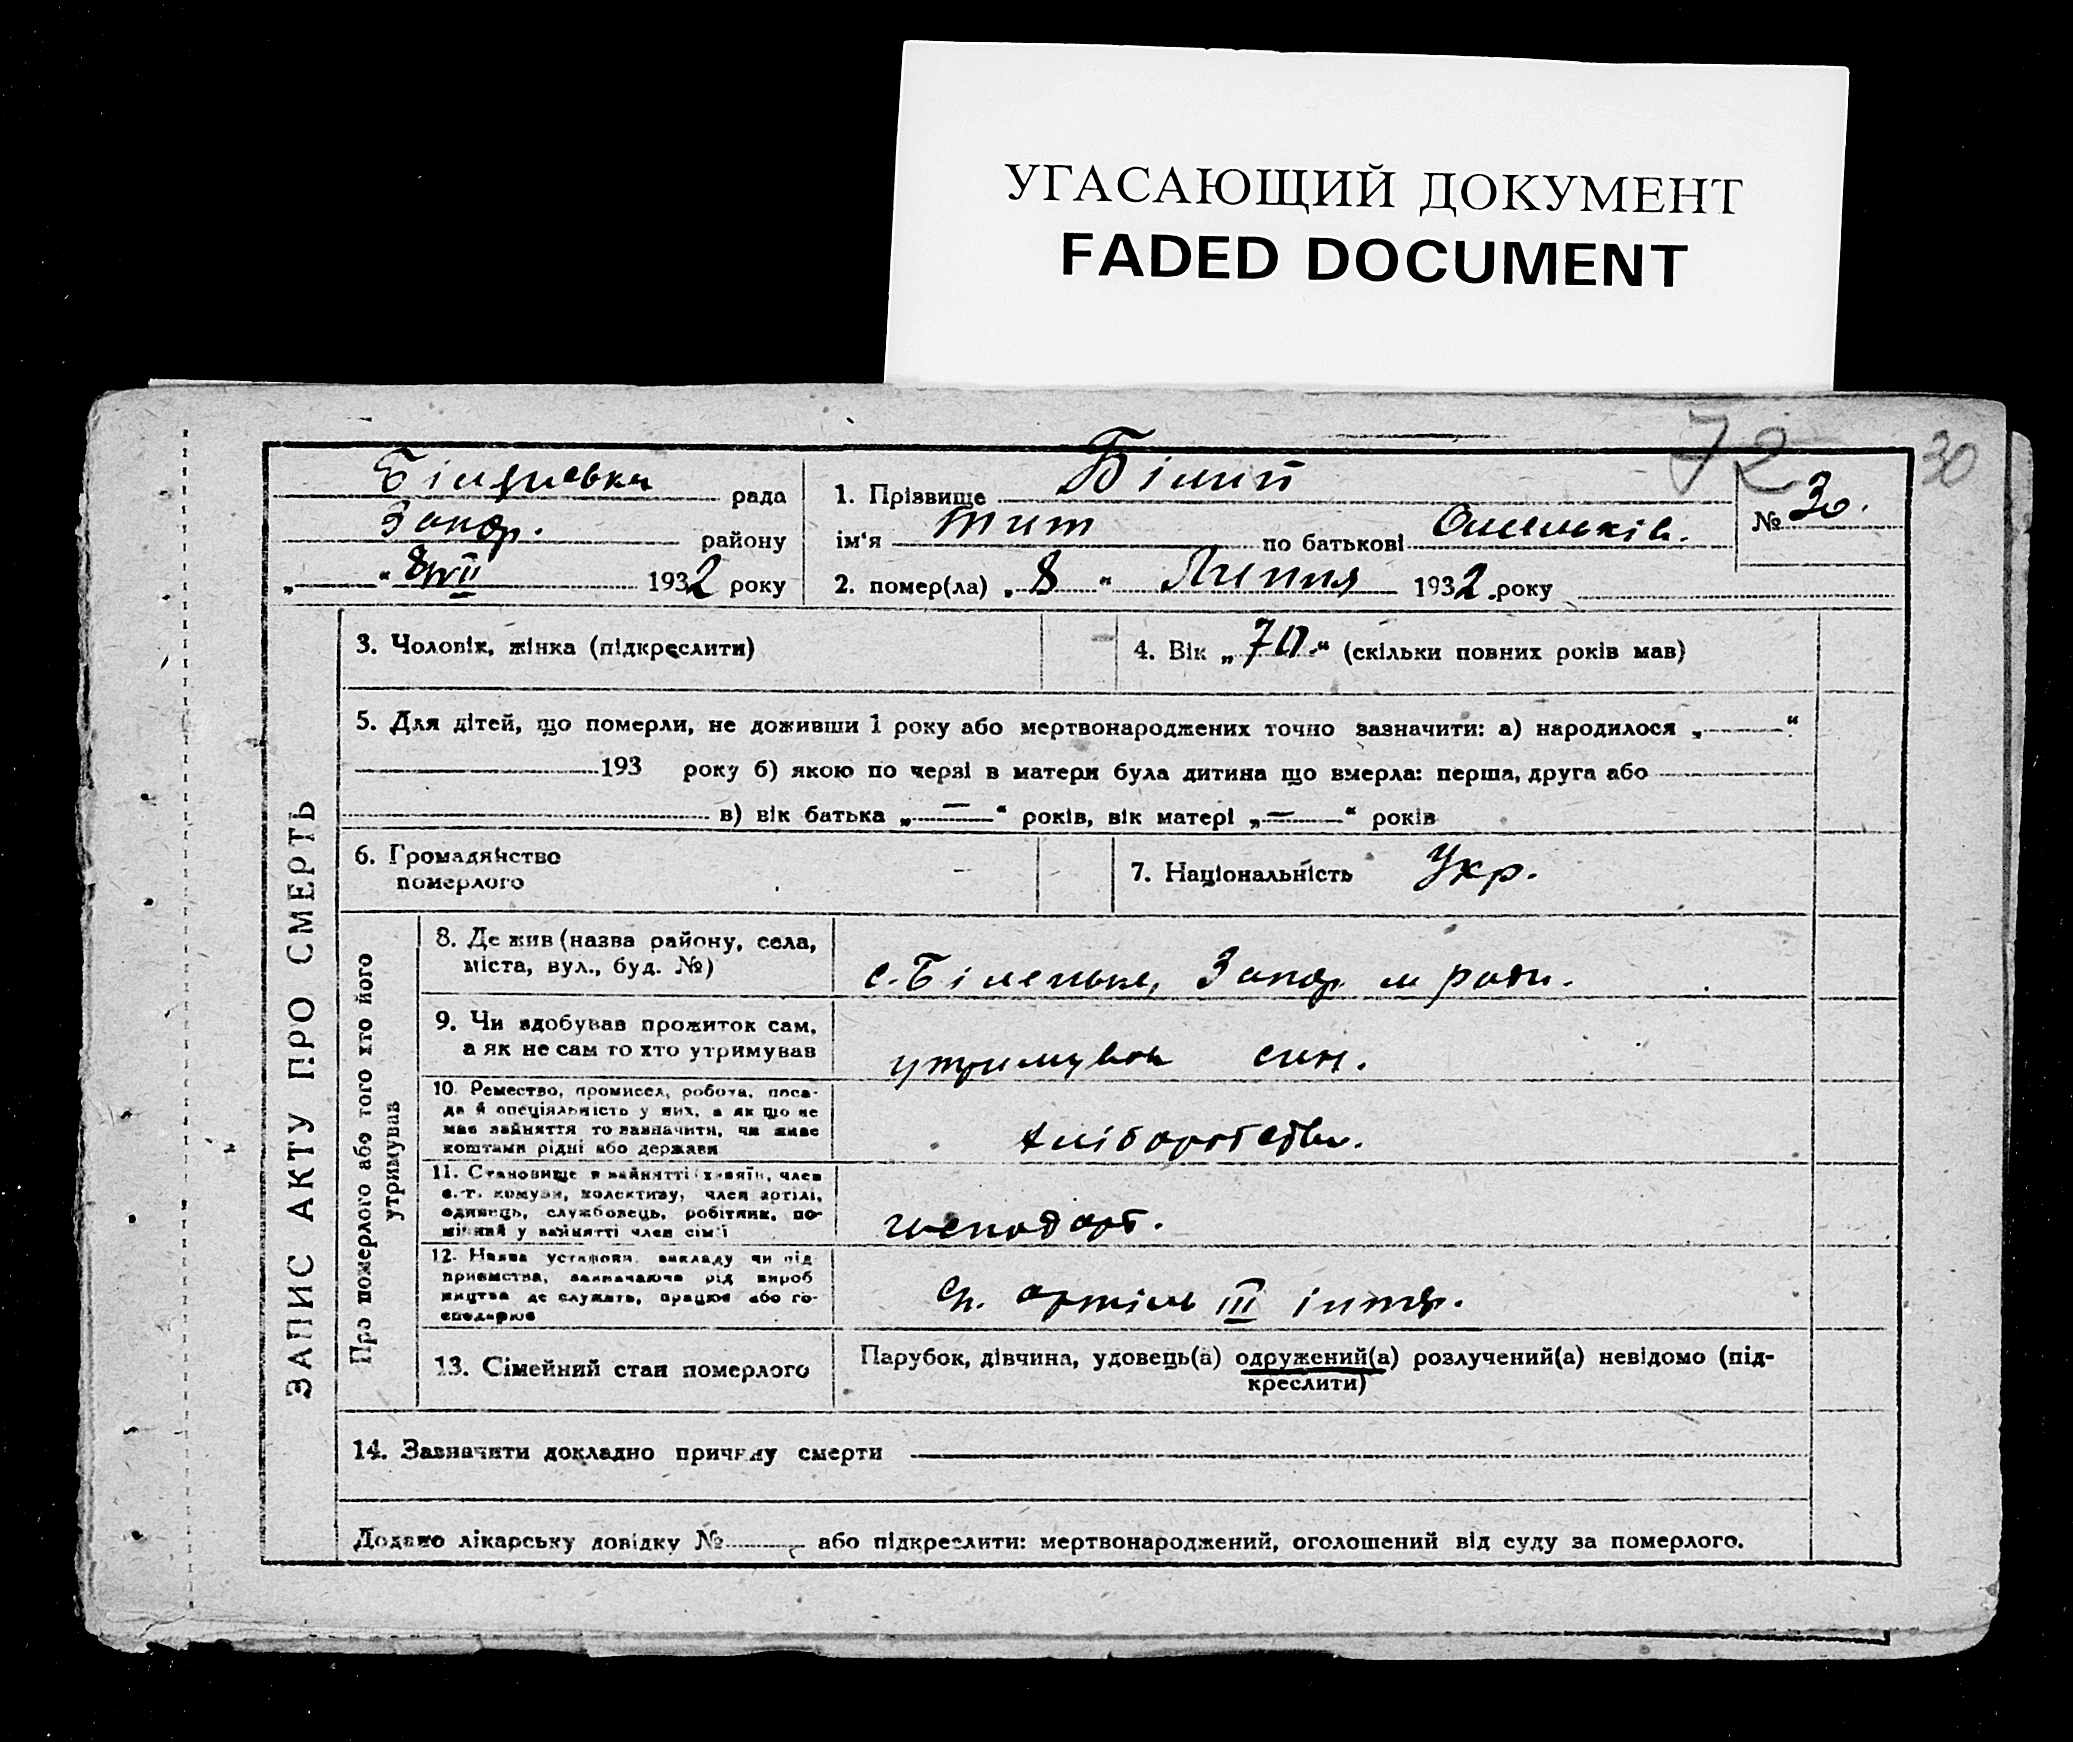 УГАСАЮЩИЙ ДОКУМЕНТ
FADED DOCUMENT
72
30
Біленська рада
Запор. району
„ “ 8/VII 1932 року
1. Прізвище Білий
ім‘я Тит по батькові Омельків.
№ 30.
2. помер(ла) „ 8 “ Липня 1932 року
ЗАПИС АКТУ ПРО СМЕРТЬ
3. Чоловік, жінка (підкреслити)
4. Вік „ 70 “ (скільки повних років мав)
5. Для дітей, що померли, не доживши 1 року або мертвонароджених точно зазначити: а) народилося „ “
193 року б) якою по черзі в матери була дитина що вмерла: перша, друга або
в) вік батька „ — “ років, вік матері „ — “ років
6. Громадянство
померлого
7. Національність Укр.
Про померлого або того хто його
утримував
8. Де жив (назва району, села,
міста, вул., буд. №)
с. Біленьке, Запор. м ради.
9. Чи здобував прожиток сам,
а як не сам то хто утримував
утримував син.
10. Ремество, промисел, робота, поса-
да й спеціяльність у них, а як що не
мав зайняття то зазначити, чи живе
коштами рідні або держави
хліборобство.
11. Становище в зайнятті (хазяїн, член
с.-г. комуни, колективу, член артілі,
одинець, службовець, робітник, по-
мічний у зайнятті член сім‘ї
господар.
12. Назва установи, закладу чи під
приємства, зазначаючи рід вироб
ництва де служить, працює або го-
сподарює
артіль III інтер.
13. Сімейний стан померлого
Парубок, дівчина, удовець(а) одружений(а) розлучений(а) невідомо (під-
креслити)
14. Зазначити докладно причину смерти
Додано лікарську довідку № або підкреслити: мертвонароджений, оголошений від суду за померлого.